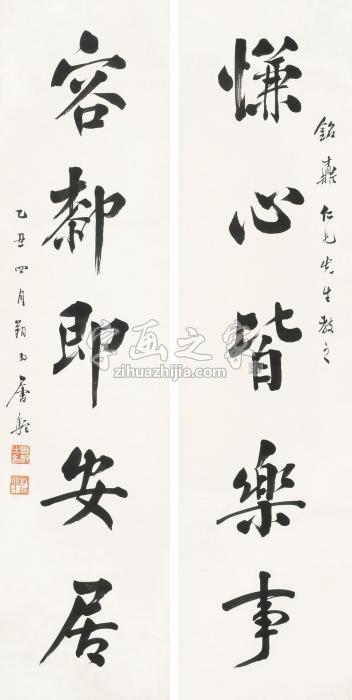 銘仁兄先生教之
慊心皆樂事
容厀即安居
乙丑四月唐駝
字画之家
zihuazhijia.com